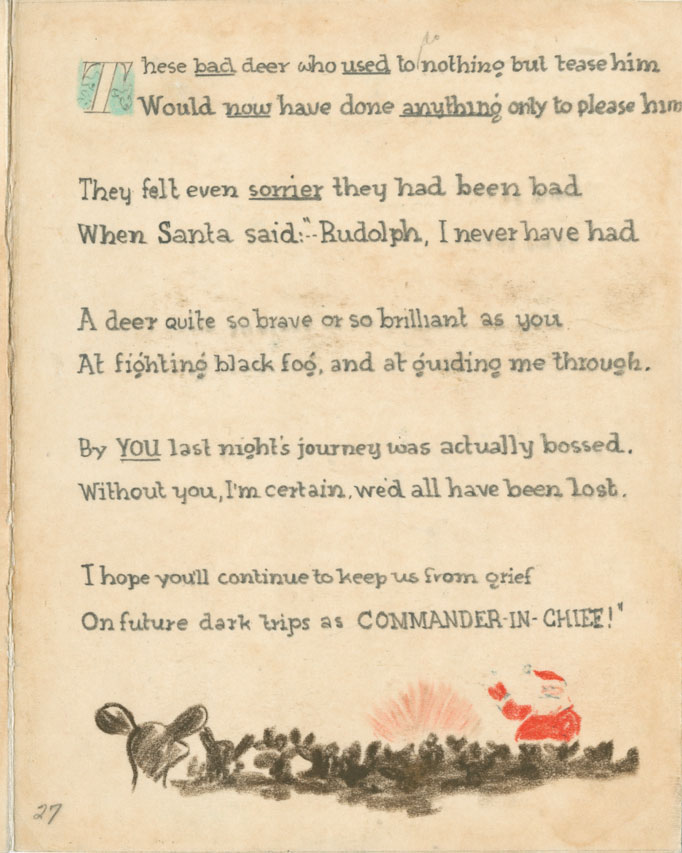 These bad deer who used to do nothing but tease him
Would now have done anything only to please him
They felt even sorrier they had been bad
When Santa said:"--Rudolph, I never have had
A deer quite so brave or so brilliant as you
At fighting black fog, and at guiding me through.
By YOU last night's journey was actually bossed.
Without you, I'm certain, we'd all have been lost.
I hope you'll continue to keep us from grief
On future dark trips as COMMANDER-IN-CHIEF!"
27